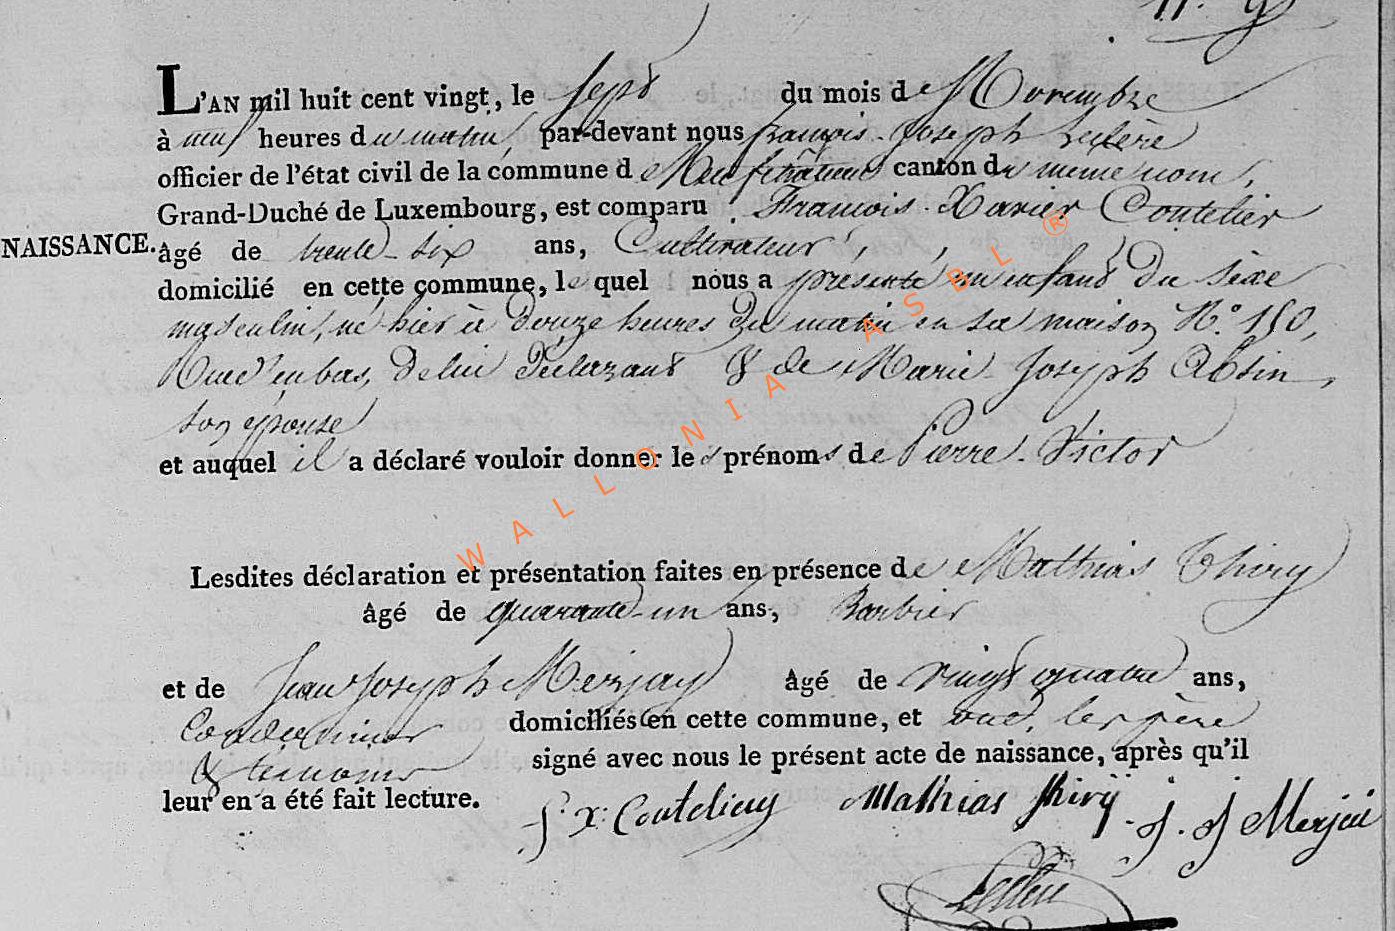 L'AN mil huit cent vingt, le sept du mois de Novembre
à neuf heures du matin, par-devant nous françois-Joseph Leclère
officier de l'état civil de la commune de Neufchâteau canton du même nom,
Grand-Duché de Luxembourg, est comparu François-Xavier Coutelier
NAISSANCE. âgé de trente-six ans, Cultivateur,
domicilié en cette commune, lequel nous a présenté un enfant du sèxe
masculin, né hier à douze heures du matin en sa maison N.°
Rue d'en bas, de lui déclarant & de Marie-Joseph Absin,
son épouse
et auquel il a déclaré vouloir donner les prénoms de Pierre-Victor
WALLONIA ASBL ®
Lesdites déclaration et présentation faites en présence de Mathias Thiry
âgé de quarante-un ans, Barbier
et de Jean Joseph Merjay âgé de vingt quatre ans,
Cordonnier domiciliés en cette commune, et ont, les père
& témoins signé avec nous le présent acte de naissance, après qu'il
leur en a été fait lecture.
f. x. Coutelier Mathias thirÿ J. J Merjai